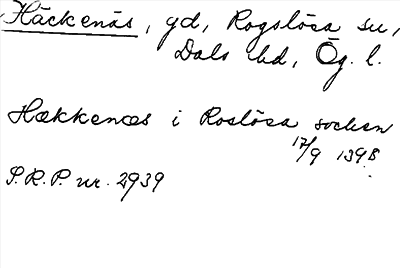 Häckenäs, gd, Rogslösa sn,
Dals hd, Ög. l.
Hækkenæs i Roslösa socken
17/9 1398
S.R.P. nr. 2939